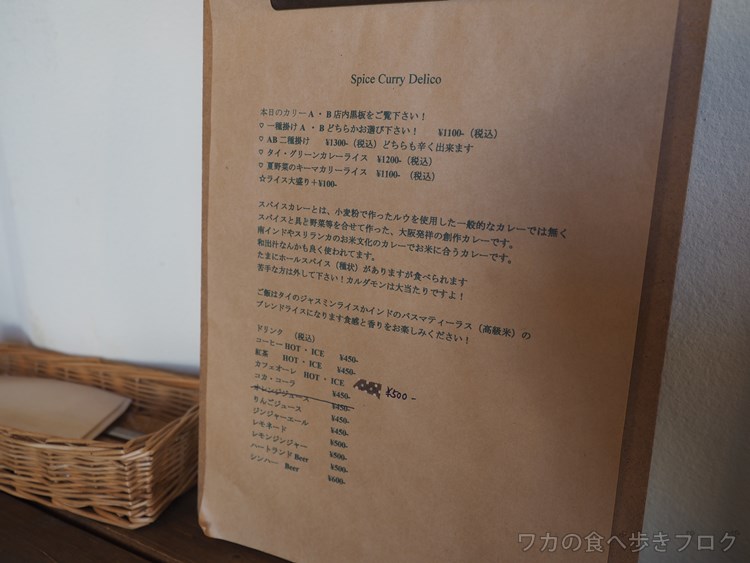 Spice Curry Delico
本日のカリーA ・ B 店内黒板をご覧下さい！
♡ 一種掛けA ・ Bどちらかお選び下さい！ ¥1100-（税込）
♡ AB二種掛け ¥1300-（税込）どちらも辛く出来ます
♡ タイ・グリーンカレーライス ¥1200-（税込）
♡ 夏野菜のキーマカリーライス ¥1100-（税込）
☆ライス大盛り＋¥100-
スパイスカレーとは、小麦粉で作ったルウを使用した一般的なカレーでは無く
スパイスと具と野菜等を合せて作った、大阪発祥の創作カレーです。
南インドやスリランカのお米文化のカレーでお米に合うカレーです。
和出汁なんかも良く使われてます。
たまにホールスパイス（種状）がありますが食べられます
苦手な方は外して下さい！カルダモンは大当たりですよ！
ご飯はタイのジャスミンライスかインドのバスマティーラス（高級米）の
ブレンドライスになります食感と香りをお楽しみください！
ドリンク （税込）
コーヒーHOT・ICE ¥450-
紅茶 HOT・ICE ¥450-
カフェオーレ HOT・ICE ¥500-
コカ・コーラ ¥450-
オレンジジュース ¥450-
りんごジュース ¥450-
ジンジャーエール ¥450-
レモネード ¥500-
レモンジンジャー ¥500-
ハートランドBeer ¥500-
シンハー Beer ¥600-
ワカの食べ歩きブログ